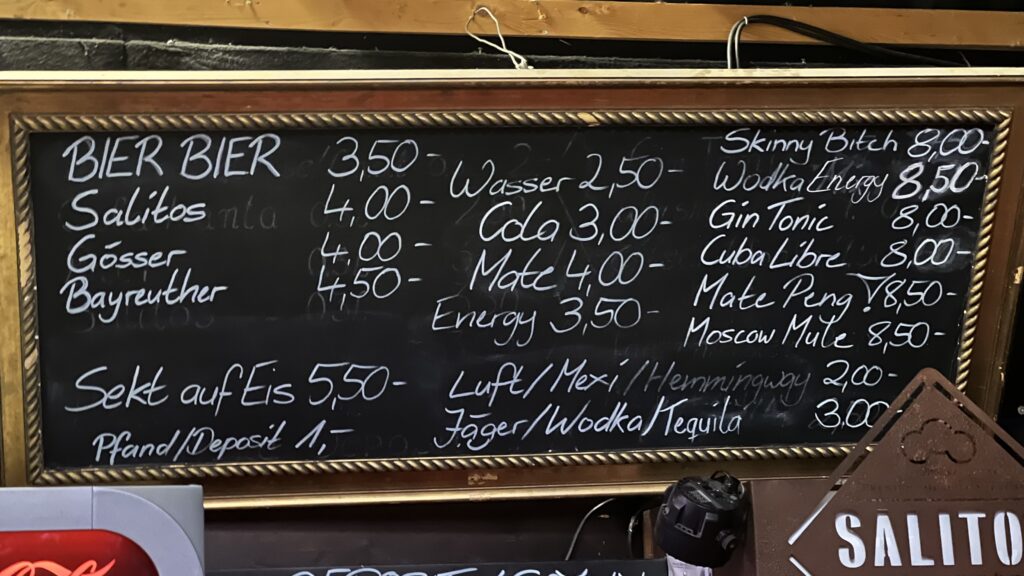 BIER BIER 3,50-
Salitos 4,00-
Gösser 4,00-
Bayreuther 4,50-
Sekt auf Eis 5,50-
Pfand/Deposit 1,-
Wasser 2,50-
Cola 3,00-
Mate 4,00-
Energy 3,50-
Skinny Bitch 8,00-
Wodka Energy 8,50-
Gin Tonic 8,00-
Cuba Libre 8,00-
Mate Peng 8,50-
Moscow Mule 8,50-
Luft/Mexi/Hemmingway 2,00-
Jäger/Wodka/Tequila 3,00
SALITO